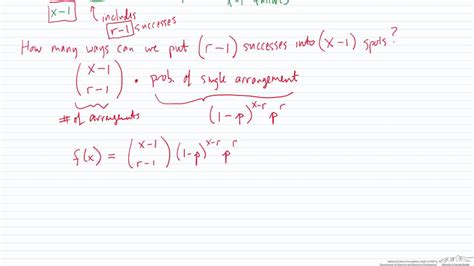 x-1 includes x-1 failures
r-1 successes
How many ways can we put (r-1) successes into (x-1) spots?
(x-1 r-1) · prob. of single arrangement
# of arrangements (1-p)^x-r p^r
f(x) = (x-1 r-1) (1-p)^x-r p^r